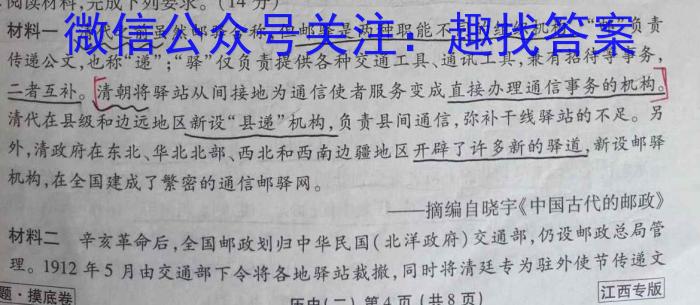 阅读材料,完成下列要求。(14分)
微信公众号关注：趣找答案
材料一
虽然邮驿合称,但邮驿是两种职能不
负责
传递公文,也称“递”;“驿”仅负责提供各种交通工具、通讯工具,兼有招待等事务,
二者互补。清朝将驿站从间接地为通信使者服务变成直接办理通信事务的机构。
清代在县级和边远地区新设“县递”机构,负责县间通信,弥补干线驿站的不足。另
外,清政府在东北、华北北部、西北和西南边疆地区开辟了许多新的驿道,新设邮驿
机构,在全国建成了繁密的通信邮驿网。
——摘编自晓宇《中国古代的邮政》
材料二 辛亥革命后,全国邮政划归中华民国(北洋政府)交通部,仍设邮政总局管
理。1912年5月由交通部下令将各地驿站裁撤,同时将清廷专为驻外使节传递文
题·摸底卷
历史(二) 第4页(共8页)
江西专版